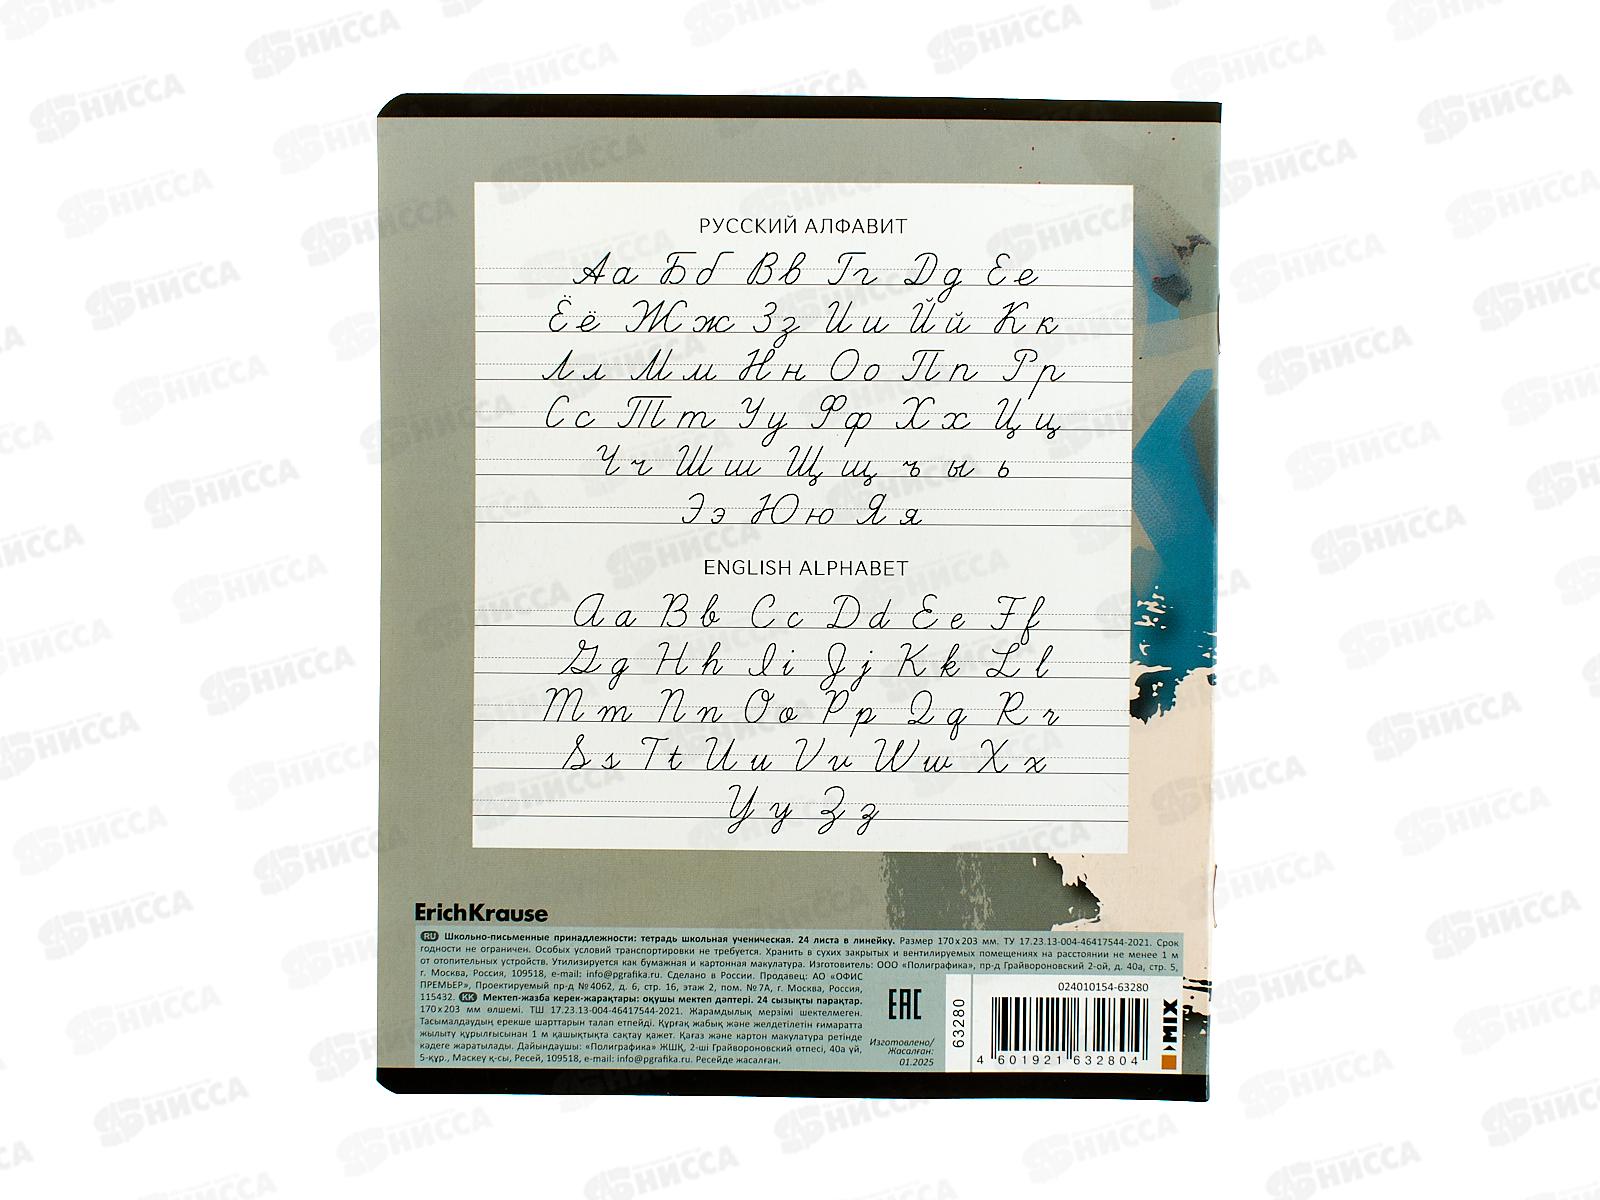 РУССКИЙ АЛФАВИТ
Аа Бб Вв Гг Дд Ее
Ёё Жж Зз Ии Йй Кк
Лл Мм Нн Оо Пп Рр
Сс Тт Уу Фф Хх Цц
Чч Шш Щщ ъ ы ь
Ээ Юю Яя
ENGLISH ALPHABET
Aa Bb Cc Dd Ee Ff
Gg Hh Ii Jj Kk Ll
Mm Nn Oo Pp Qq Rr
Ss Tt Uu Vv Ww Xx
Yy Zz
ErichKrause
RU Школьно-письменные принадлежности: тетрадь школьная ученическая. 24 листа в линейку. Размер 170х203 мм. ТУ 17.23.13-004-46417544-2021. Срок
годности не ограничен. Особых условий транспортировки не требуется. Хранить в сухих закрытых и вентилируемых помещениях на расстоянии не менее 1 м
от отопительных устройств. Утилизируется как бумажная и картонная макулатура. Изготовитель: ООО «Полиграфика», пр-д Грайвороновский 2-ой, д. 40а, стр. 5,
г. Москва, Россия, 109518, e-mail: info@pgrafika.ru. Сделано в России. Продавец: АО «ОФИС
ПРЕМЬЕР», Проектируемый пр-д №4062, д. 6, стр. 16, этаж 2, пом. №7А, г. Москва, Россия,
115432. KK Мектеп-жазба керек-жарақтары: оқушы мектеп дәптері. 24 сызықты парақтар.
170х203 мм өлшемі. ТШ 17.23.13-004-46417544-2021. Жарамдылық мерзімі шектелмеген.
Тасымалдаудың ерекше шарттарын талап етпейді. Құрғақ жабық және желдетілетін ғимаратта
жылыту құрылғысынан 1 м қашықтықта сақтау қажет. Қағаз және картон макулатура ретінде
кәдеге жаратылады. Дайындаушы: «Полиграфика» ЖШҚ, 2-ші Грайвороновский өтпесі, 40а үй,
5-құр., Мәскеу қ-сы, Ресей, 109518, e-mail: info@pgrafika.ru. Ресейде жасалған.
EAC
Изготовлено/
Жасалған:
01.2025
63280
024010154-63280
4 601921 632804
MIX
НИССА